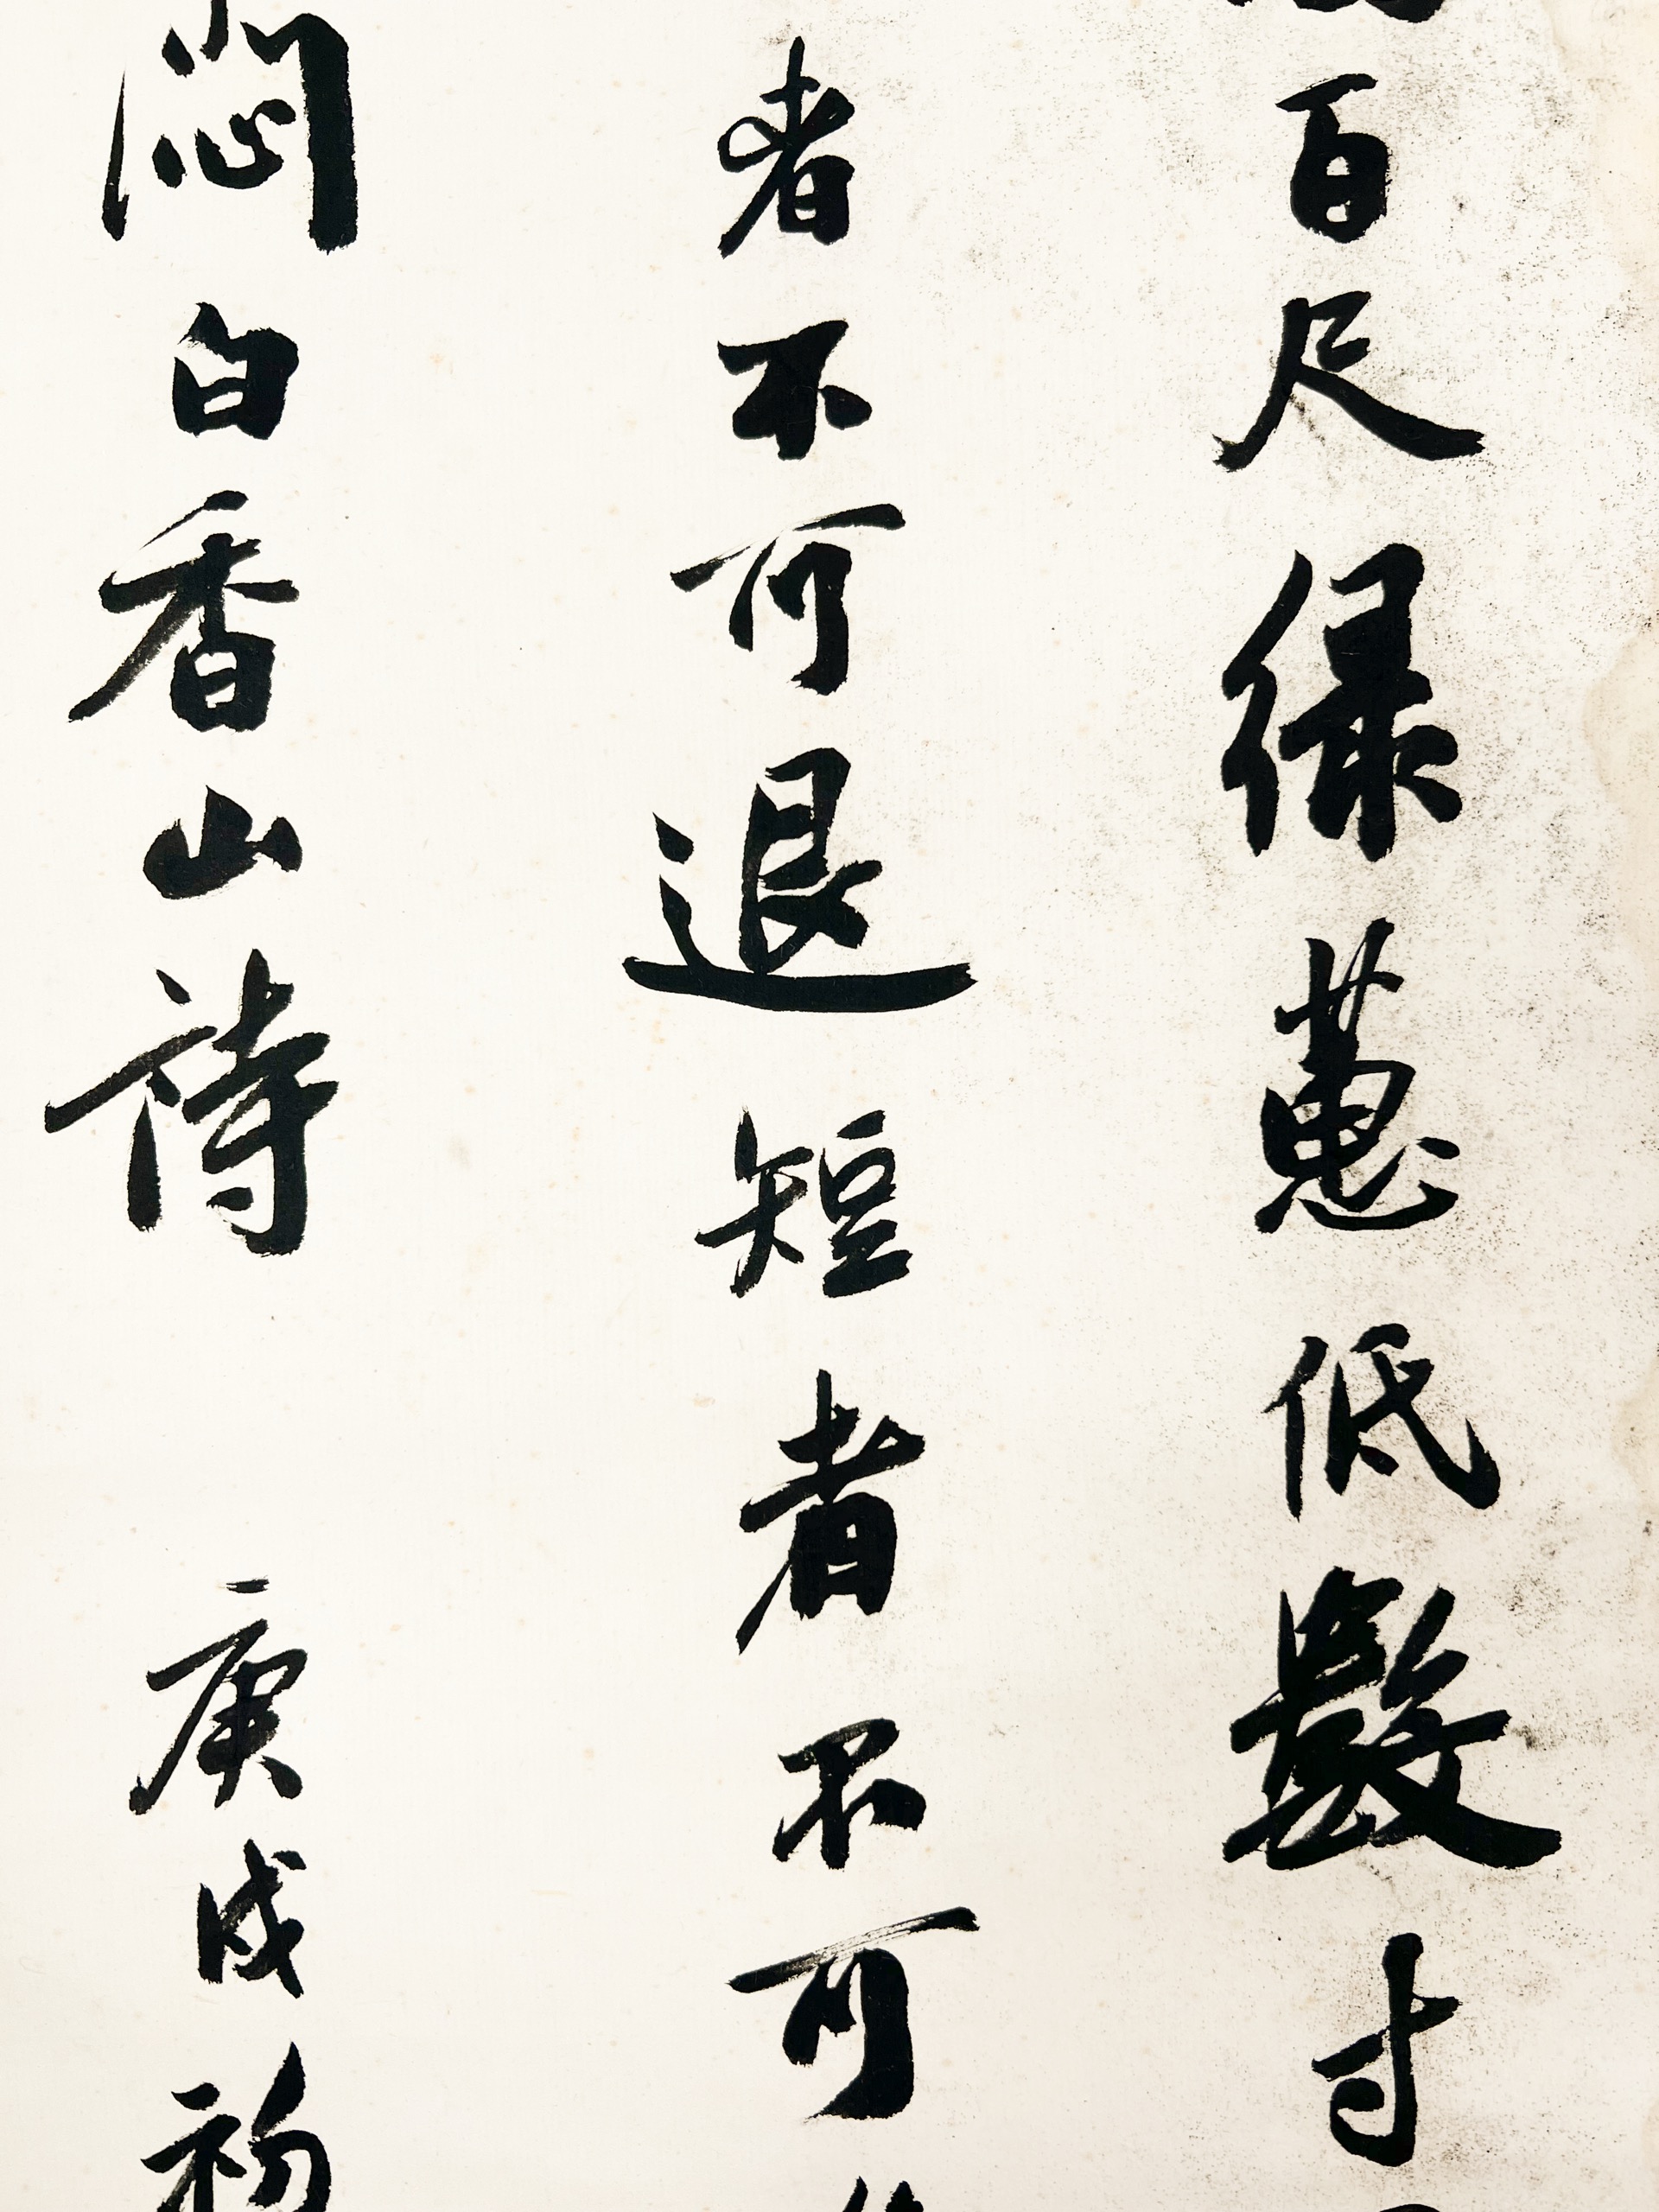 百尺緑蕙低數寸
者不可退短者不可
悶白香山詩 庚戌初